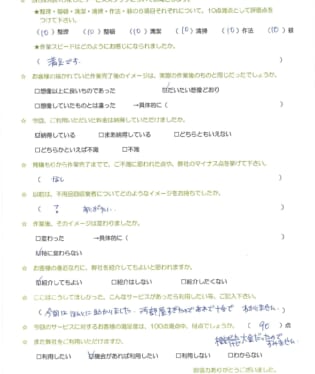 ★整理・整頓・清潔・清掃・作法・躾の6項目それぞれについて、10点満点として評価点を
つけて下さい。
(10) 整理 (10) 整頓 (10) 清潔 (10) 清掃 (10) 作法 (10) 躾
★作業スピードはどのようにお感じになられましたか。
( 満足です )
☆ お客様の描かれていた作業完了後のイメージは、実際の作業後のものと同じだったでしょうか。
□想像以上に良いものであった ☑だいたい想像どおり
□想像していたものとは違った →具体的に( )
☆ 今回、ご利用いただいた料金は納得していただけましたか。
☑納得している □まあ納得している □どちらともいえない
□どちらかといえば不満 □不満
☆ 見積もりから作業完了までで、ご不満に思われた点や、弊社のマイナス点を挙げて下さい。
( なし )
☆ 以前は、不用品回収業者についてどのようなイメージをお持ちでしたか。
( ? )
☆ 作業後、そのイメージは変わりましたか。
□変わった →具体的に( )
☑特に変わらない
☆ お客様の身近な方に、弊社を紹介してもよいと思われますか。
☑紹介してもよい □紹介はしない □紹介したくない
☆ ここはこうしてほしかった、こんなサービスがあったら利用したい等、ご記入下さい。
( 今回は ほんとに助かりました。 )
☆ 今回のサービスに対するお客様の満足度は、100点満点中、何点でしょうか。 ( 90 ) 点
☆ また弊社をご利用いただけますか。
□利用したい ☑機会があれば利用したい □利用しない □わからない
御協力ありがとうございました。